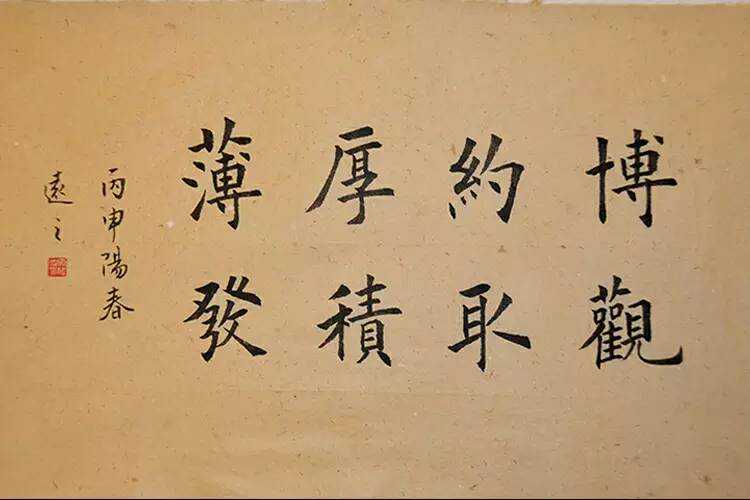 博觀
約取
厚積
薄發
丙申陽春
遠之